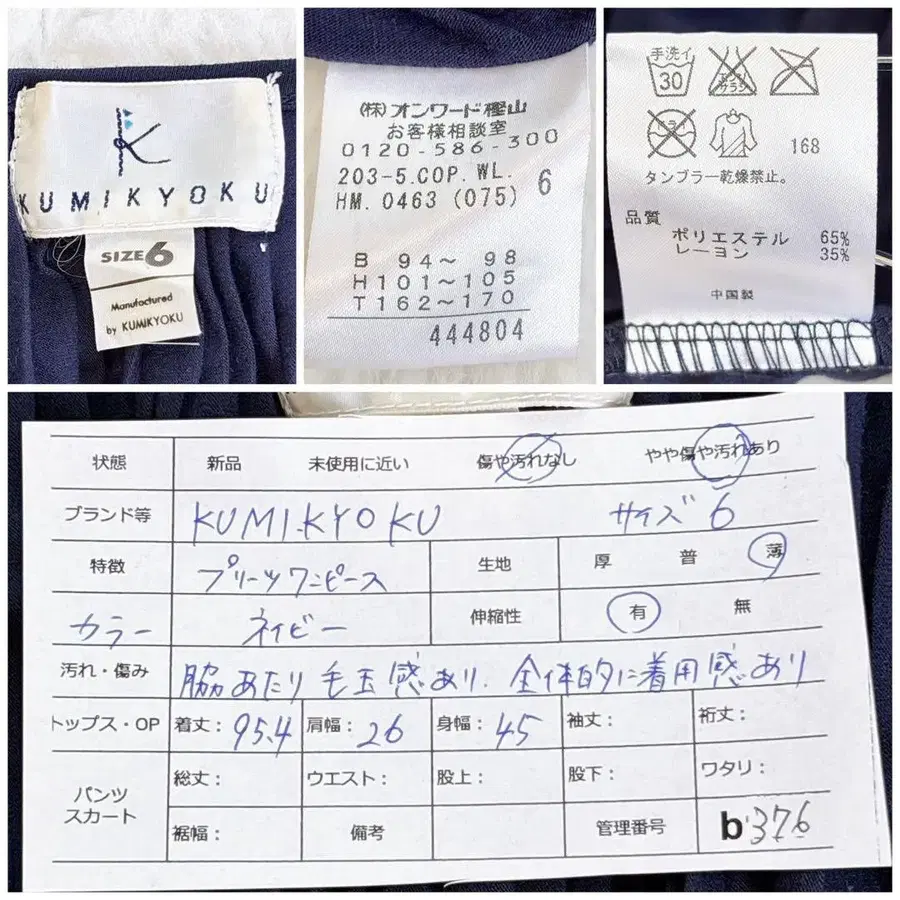 K
KUMIKYOKU
SIZE 6
Manufactured
by KUMIKYOKU
(株)オンワード樫山
お客様相談室
0120-586-300
203-5.COP.WL.
HM.0463 (075) 6
B 94~ 98
H101~105
T162~170
444804
手洗イ
30
エンソ
サラシ
ドライ
168
タンブラー乾燥禁止。
品質
ポリエステル 65%
レーヨン 35%
中国製
状態 新品 未使用に近い 傷や汚れなし やや傷や汚れあり
ブランド等 KUMI.KYOKU サイズ 6
特徴 プリーツワンピース 生地 厚 普 薄
カラー ネイビー 伸縮性 有 無
汚れ・傷み 脇あたり毛玉感あり. 全体的に着用感あり
トップス・OP 着丈: 95.4 肩幅: 26 身幅: 45 袖丈: 裄丈:
パンツ
スカート
総丈: ウエスト: 股上: 股下: ワタリ:
裾幅: 備考 管理番号 b.376